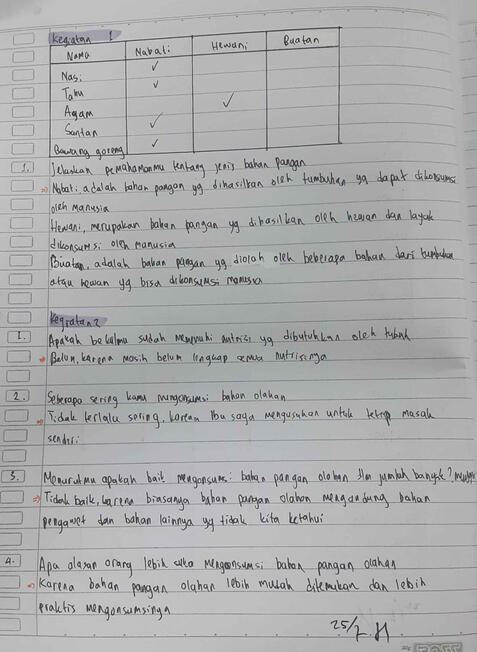 Kegiatan 1
Nama Nabati Hewani Buatan
Nasi ✓
Tahu ✓
Ayam ✓
Santan ✓
Bawang goreng ✓
1. Jelaskan pemahamanmu tentang jenis bahan pangan
⇒ Nabati, adalah bahan pangan yg dihasilkan oleh tumbuhan yg dapat dikonsumsi
oleh manusia
Hewani, merupakan bahan pangan yg dihasilkan oleh hewan dan layak
dikonsumsi oleh manusia
Buatan, adalah bahan pangan yg diolah oleh beberapa bahan dari tumbuhan
atau hewan yg bisa dikonsumsi manusia
Kegiatan 2
1. Apakah bekalmu sudah memenuhi nutrisi yg dibutuhkan oleh tubuh
Belum, karena masih belum lengkap semua nutrisinya
2. Seberapa sering kamu mengonsumsi bahan olahan
⇒ Tidak terlalu sering, karena Ibu saya mengusahakan untuk tetap masak
sendiri
3. Menurutmu apakah baik mengonsumsi bahan pangan olahan dlm jumlah banyak?
⇒ Tidak baik, karena biasanya bahan pangan olahan mengandung bahan
pengawet dan bahan lainnya yg tidak kita ketahui
4. Apa alasan orang lebih suka mengonsumsi bahan pangan olahan
⇒ Karena bahan pangan olahan lebih mudah ditemukan dan lebih
praktis mengonsumsinya
25/7